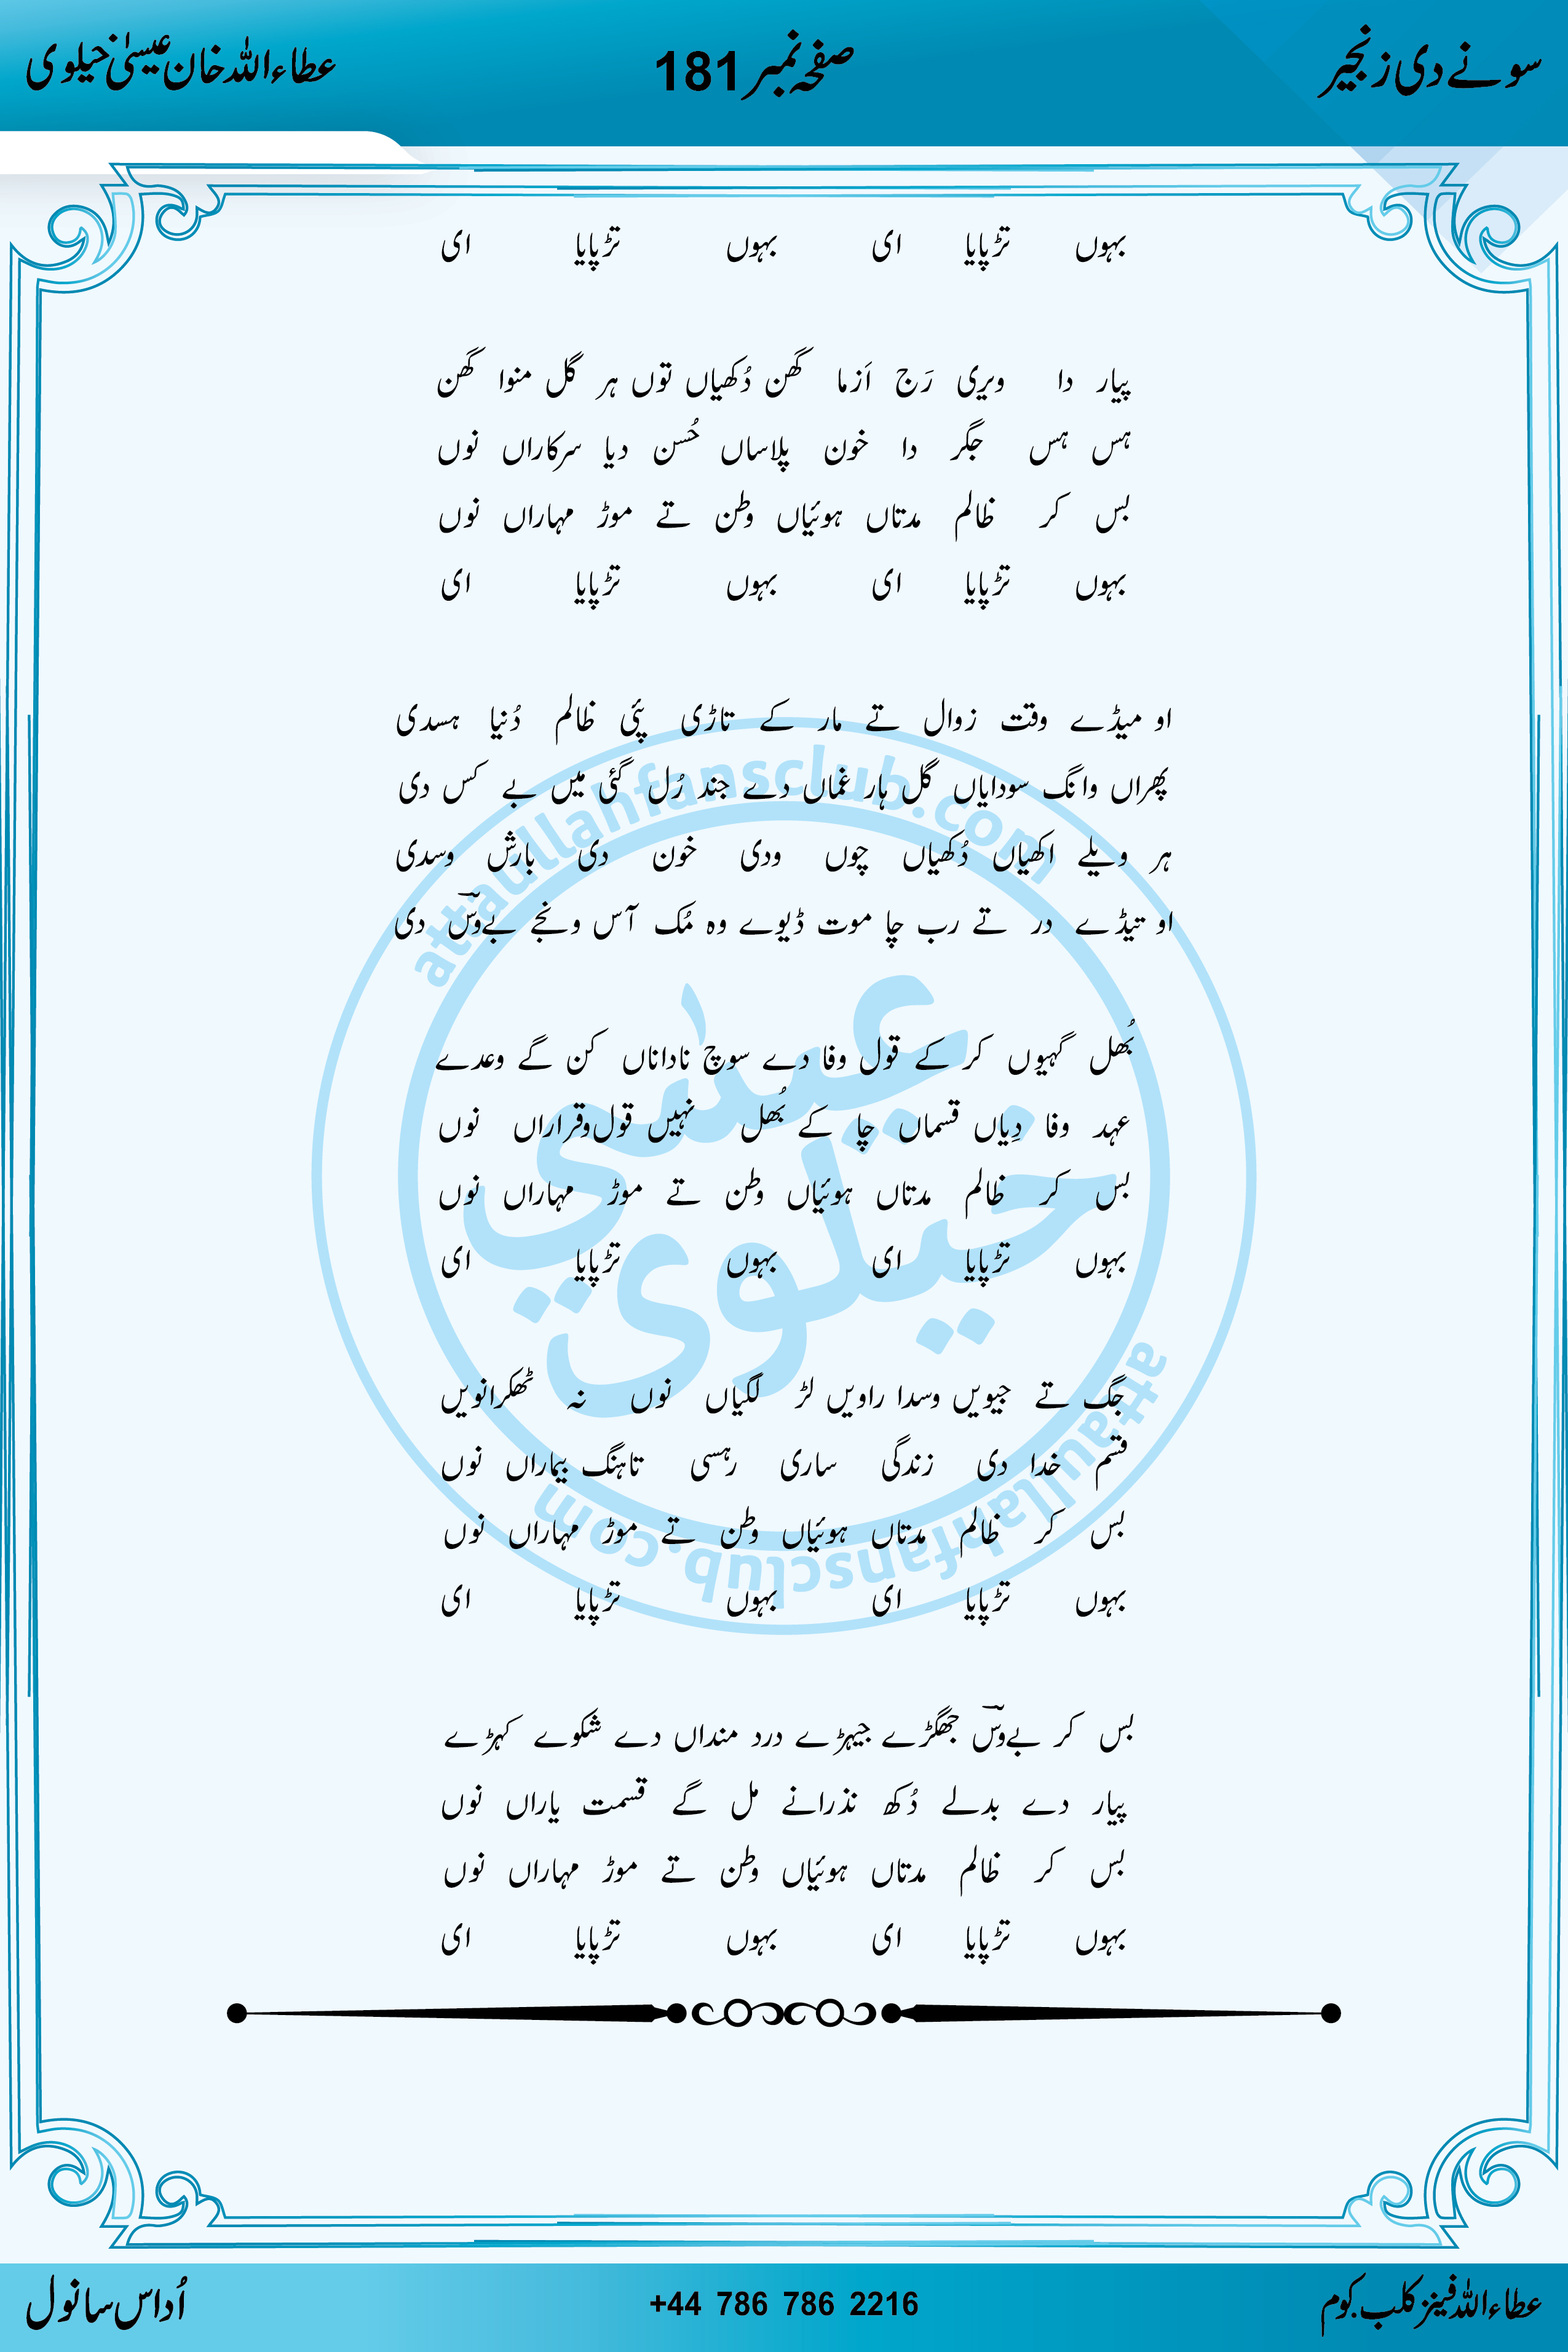 سونے دی زنجیر
صفحہ نمبر 181
عطاءاللہ خان عیسیٰ خیلوی
بہوں تڑپایا ای بہوں تڑپایا ای
پیار دا ویری رَج اَزما گھن دُکھیاں توں ہر گل منوا گھن
ہس ہس جگر دا خون پلاساں حُسن دیا سرکاراں نوں
بس کر ظالم مدتاں ہوئیاں وطن تے موڑ مہاراں نوں
بہوں تڑپایا ای بہوں تڑپایا ای
او میڈے وقت زوال تے مار کے تاڑی پئی ظالم دُنیا ہسدی
پھراں وانگ سودایاں گل ہار غماں دے جند رُل گئی میں بے کس دی
ہر ویلے اکھیاں دُکھیاں چوں ودی خون دی بارش وسدی
او تیڈے در تے رب چا موت ڈیوے وہ مُک آس ونجے بےوسؔ دی
بُھل گہیوں کر کے قول وفا دے سوچ ناداناں کن گے وعدے
عہد وفا دِیاں قسماں چا کے بُھل نہیں قول وقراراں نوں
بس کر ظالم مدتاں ہوئیاں وطن تے موڑ مہاراں نوں
بہوں تڑپایا ای بہوں تڑپایا ای
جگ تے جیویں وسدا راویں لڑ لگیاں نوں نہ ٹھکرانویں
قسم خدا دی زندگی ساری رہسی تاہنگ بیماراں نوں
بس کر ظالم مدتاں ہوئیاں وطن تے موڑ مہاراں نوں
بہوں تڑپایا ای بہوں تڑپایا ای
بس کر بےوسؔ جھگڑے جیہڑے درد منداں دے شکوے کہڑے
پیار دے بدلے دُکھ نذرانے مل گے قسمت یاراں نوں
بس کر ظالم مدتاں ہوئیاں وطن تے موڑ مہاراں نوں
بہوں تڑپایا ای بہوں تڑپایا ای
attaullahfansclub.com
عیسیٰ
خیلوی
attaullahfansclub.com
عطاءاللہ فینز کلب.کوم
+44 786 786 2216
اُداس سانول